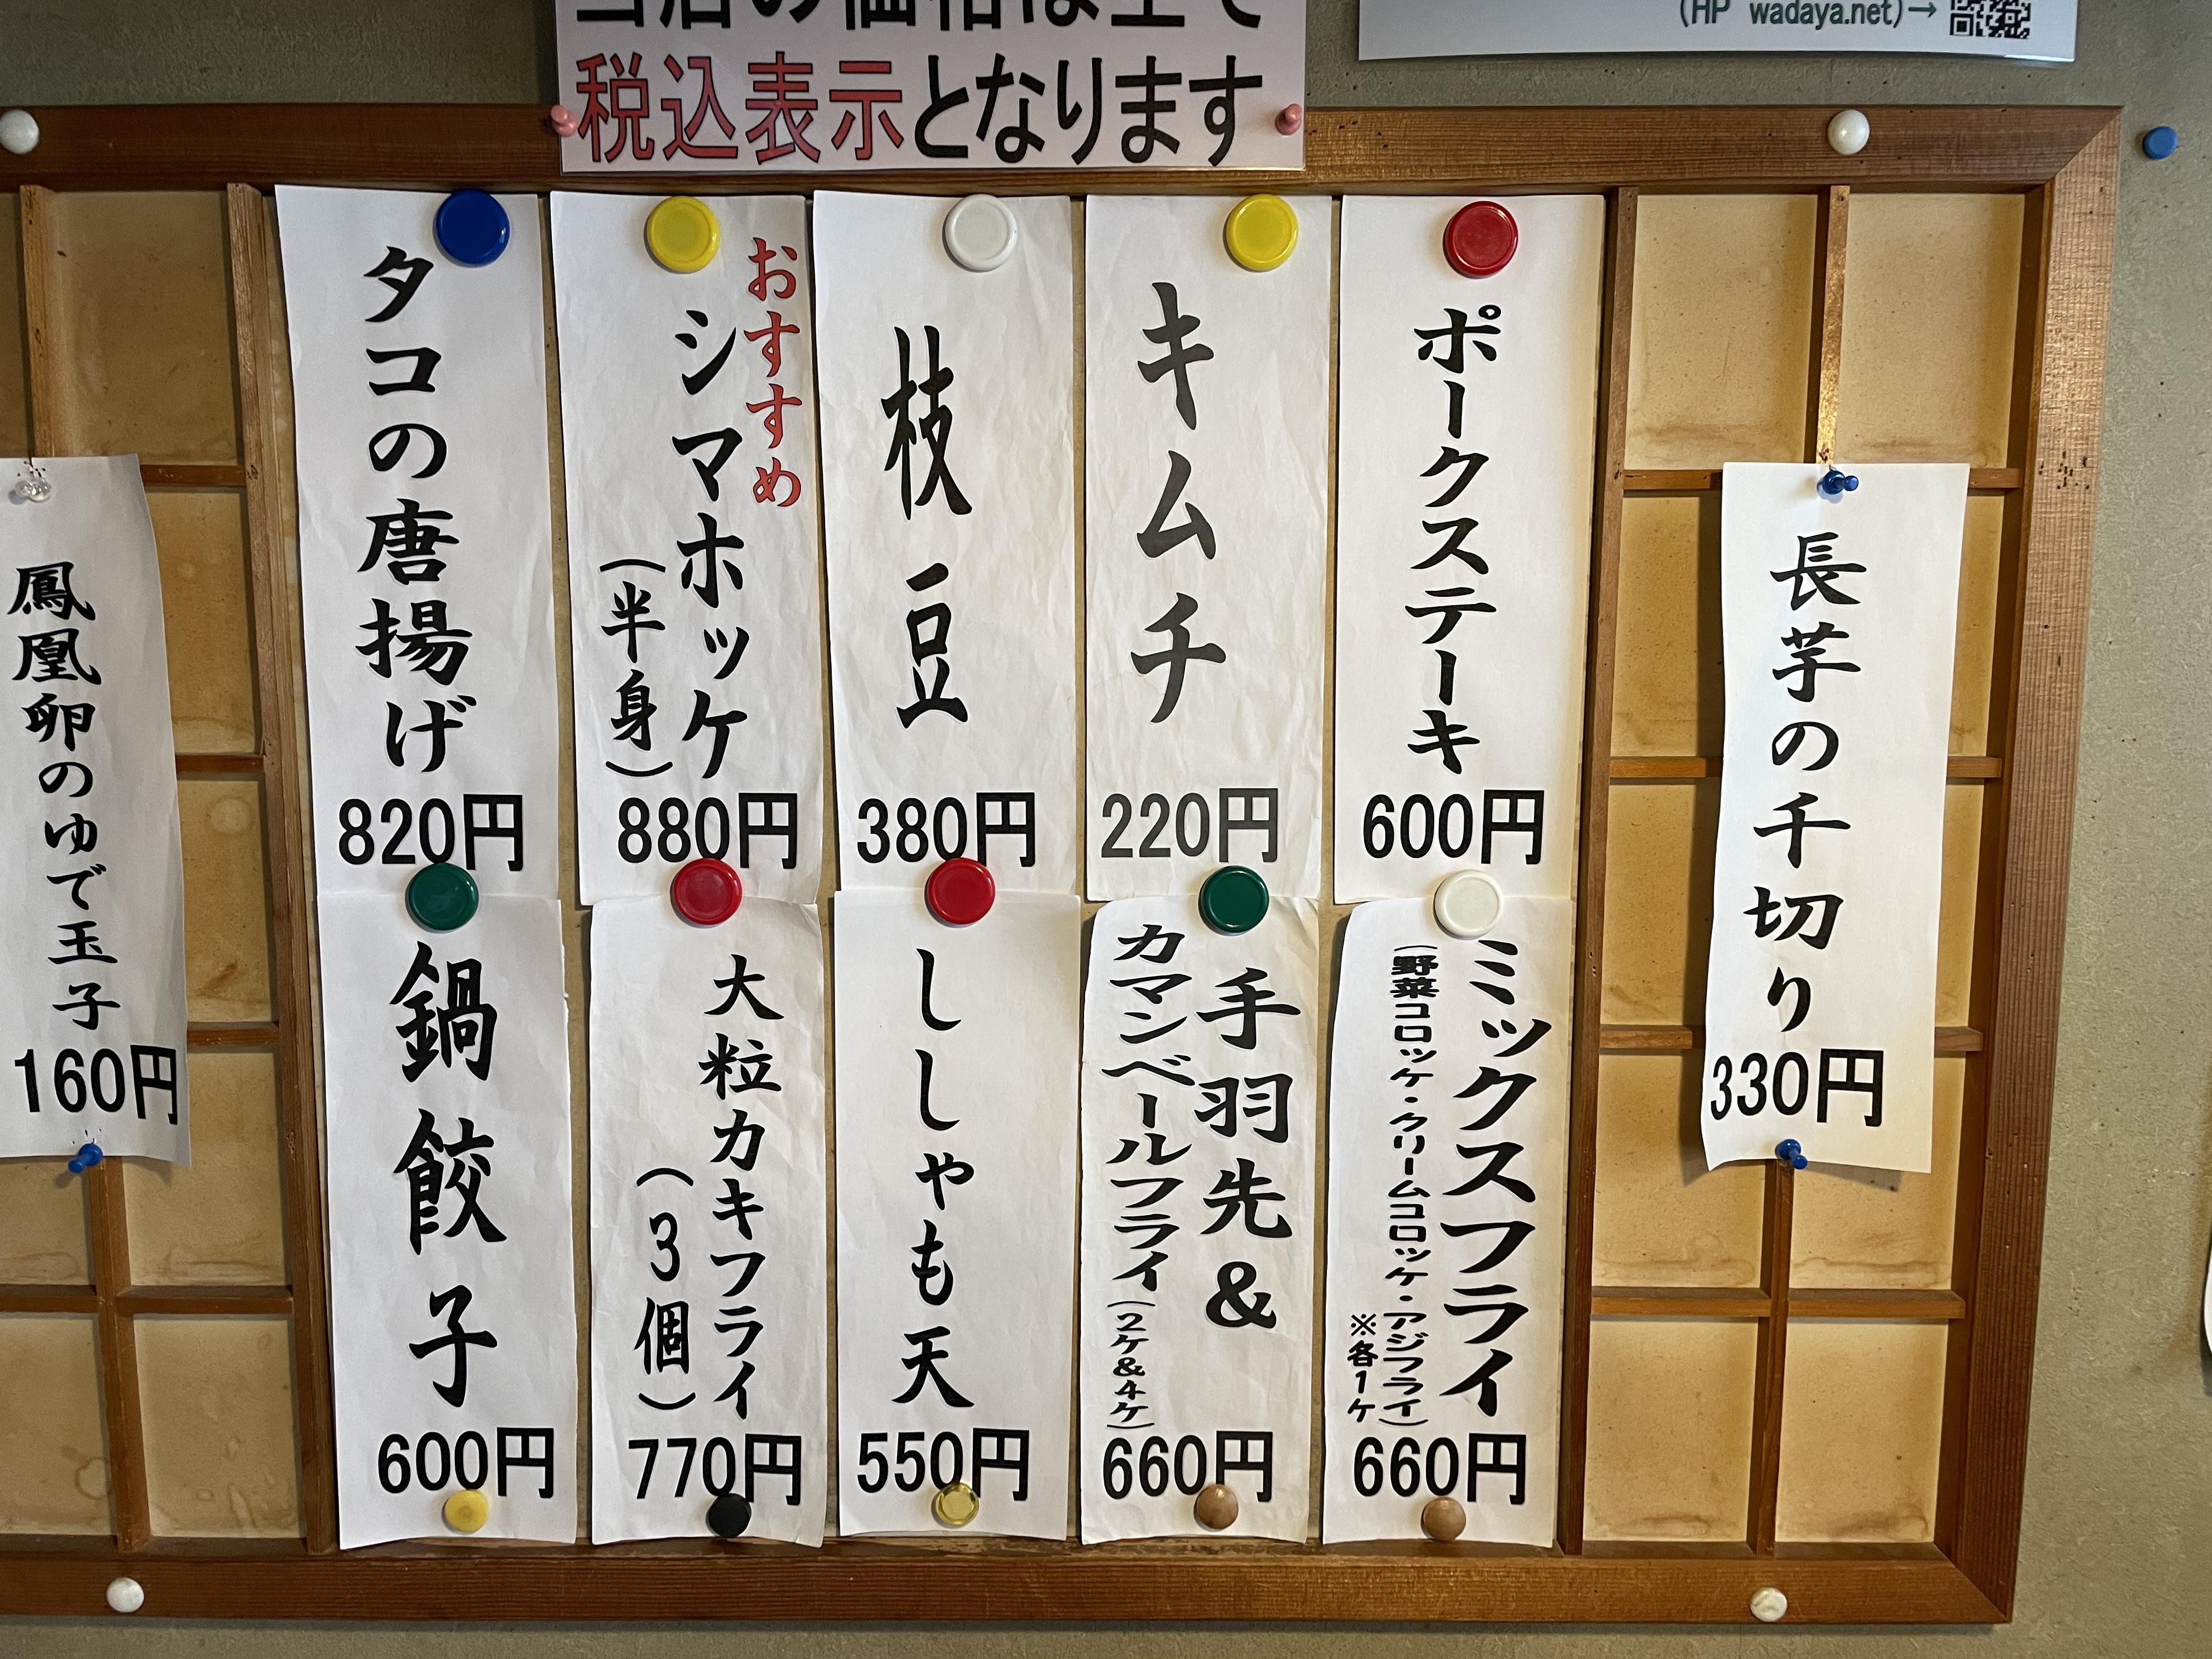 当店の価格は全て
税込表示となります
(HP wadaya.net)→
長芋の千切り
330円
ポークステーキ
600円
キムチ
220円
枝豆
380円
おすすめ
シマホッケ
(半身)
880円
タコの唐揚げ
820円
ミックスフライ
(野菜コロッケ・クリームコロッケ・アジフライ)
※各1ケ
660円
手羽先&
カマンベールフライ(2ケ&4ケ)
660円
ししゃも天
550円
大粒カキフライ
(3個)
770円
鍋餃子
600円
鳳凰卵のゆで玉子
160円